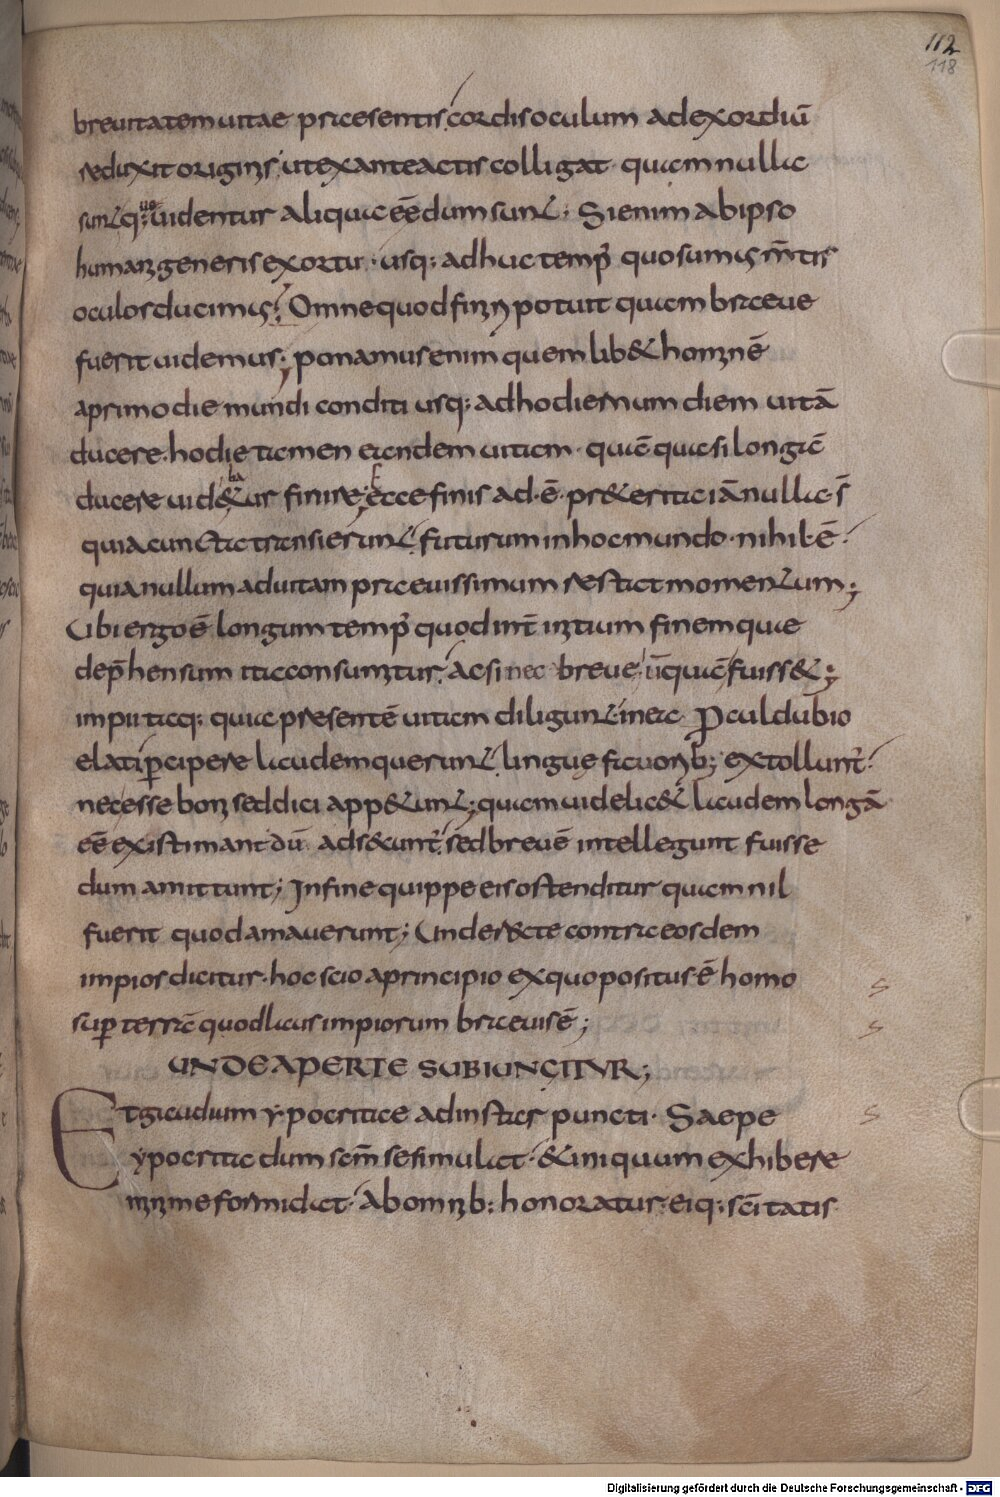 112
118
breuitatem uitae praesentis cordis oculum ad exordiū
reduxit originis ut ex ante actis colligat quam nulla
sunt q: uidentur aliqua eē dum sunt; Si enim ab ipso
humani generis exortu usq: ad hoc temp' quo sumus m̄tis
oculos ducimus; Omne quod finiri potuit quam braeue
fuerit uidemus; ponamus enim quemlib& hominē
a primo die mundi conditi usq: ad hodiernum diem uitā
ducere hodie tamen eandem uitam quā quasi longā
ducere uid&ur finire; ecce finis ad ē pr&erita iā nulla s̄
quia cuncta transierunt futurum in hoc mundo nihil ē
quia nullum ad uitam praeuissimum restat momentum;
Ubi ergo ē longum temp' quod int̄ initium finemque
dep̄hensum ita consumitur ac si nec breue ūquā fuiss&;
impii itaq: quia presentē uitam diligunt in ea Proculdubio
elati percipere laudem querunt linguę fauorib; extollunt'
necesse boni sed dici app&unt; quam uidelic& laudem longā
eē existimant dū ads&unt' sed breuē intellegunt fuisse
dum amittunt; In fine quippe eis ostenditur quam nil
fuerit quod amauerunt; Unde r&cte contra eosdem
impios dicitur hoc scio a principio ex quo positus ē homo
super terrā quod laus impiorum braeuis ē;
UNDE APERTE SUBIUNGITVR;
Et gaudium ypocritae ad instar puncti Saepe
ypocrita dum scm̄ se simulat & iniquum exhibere
minime formidat Ab omnib: honoratur eiq: sc̄itatis
Digitalisierung gefördert durch die Deutsche Forschungsgemeinschaft - DFG